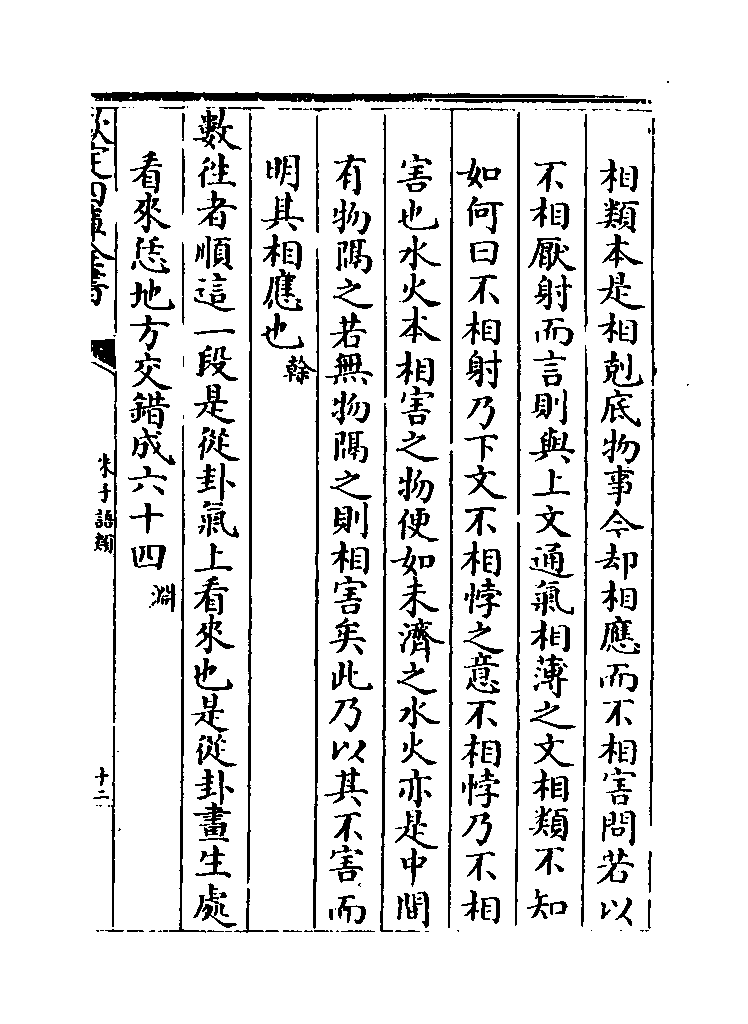 相類本是相剋底物事今却相應而不相害問若以
不相厭射而言則與上文通氣相薄之文相類不知
如何曰不相射乃下文不相悖之意不相悖乃不相
害也水火本相害之物便如未濟之水火亦是中間
有物隔之若無物隔之則相害矣此乃以其不害而
明其相應也 榦
數往者順這一段是從卦氣上看來也是從卦畫生處
看來恁地方交錯成六十四 淵
欽定四庫全書
朱子語類
十二